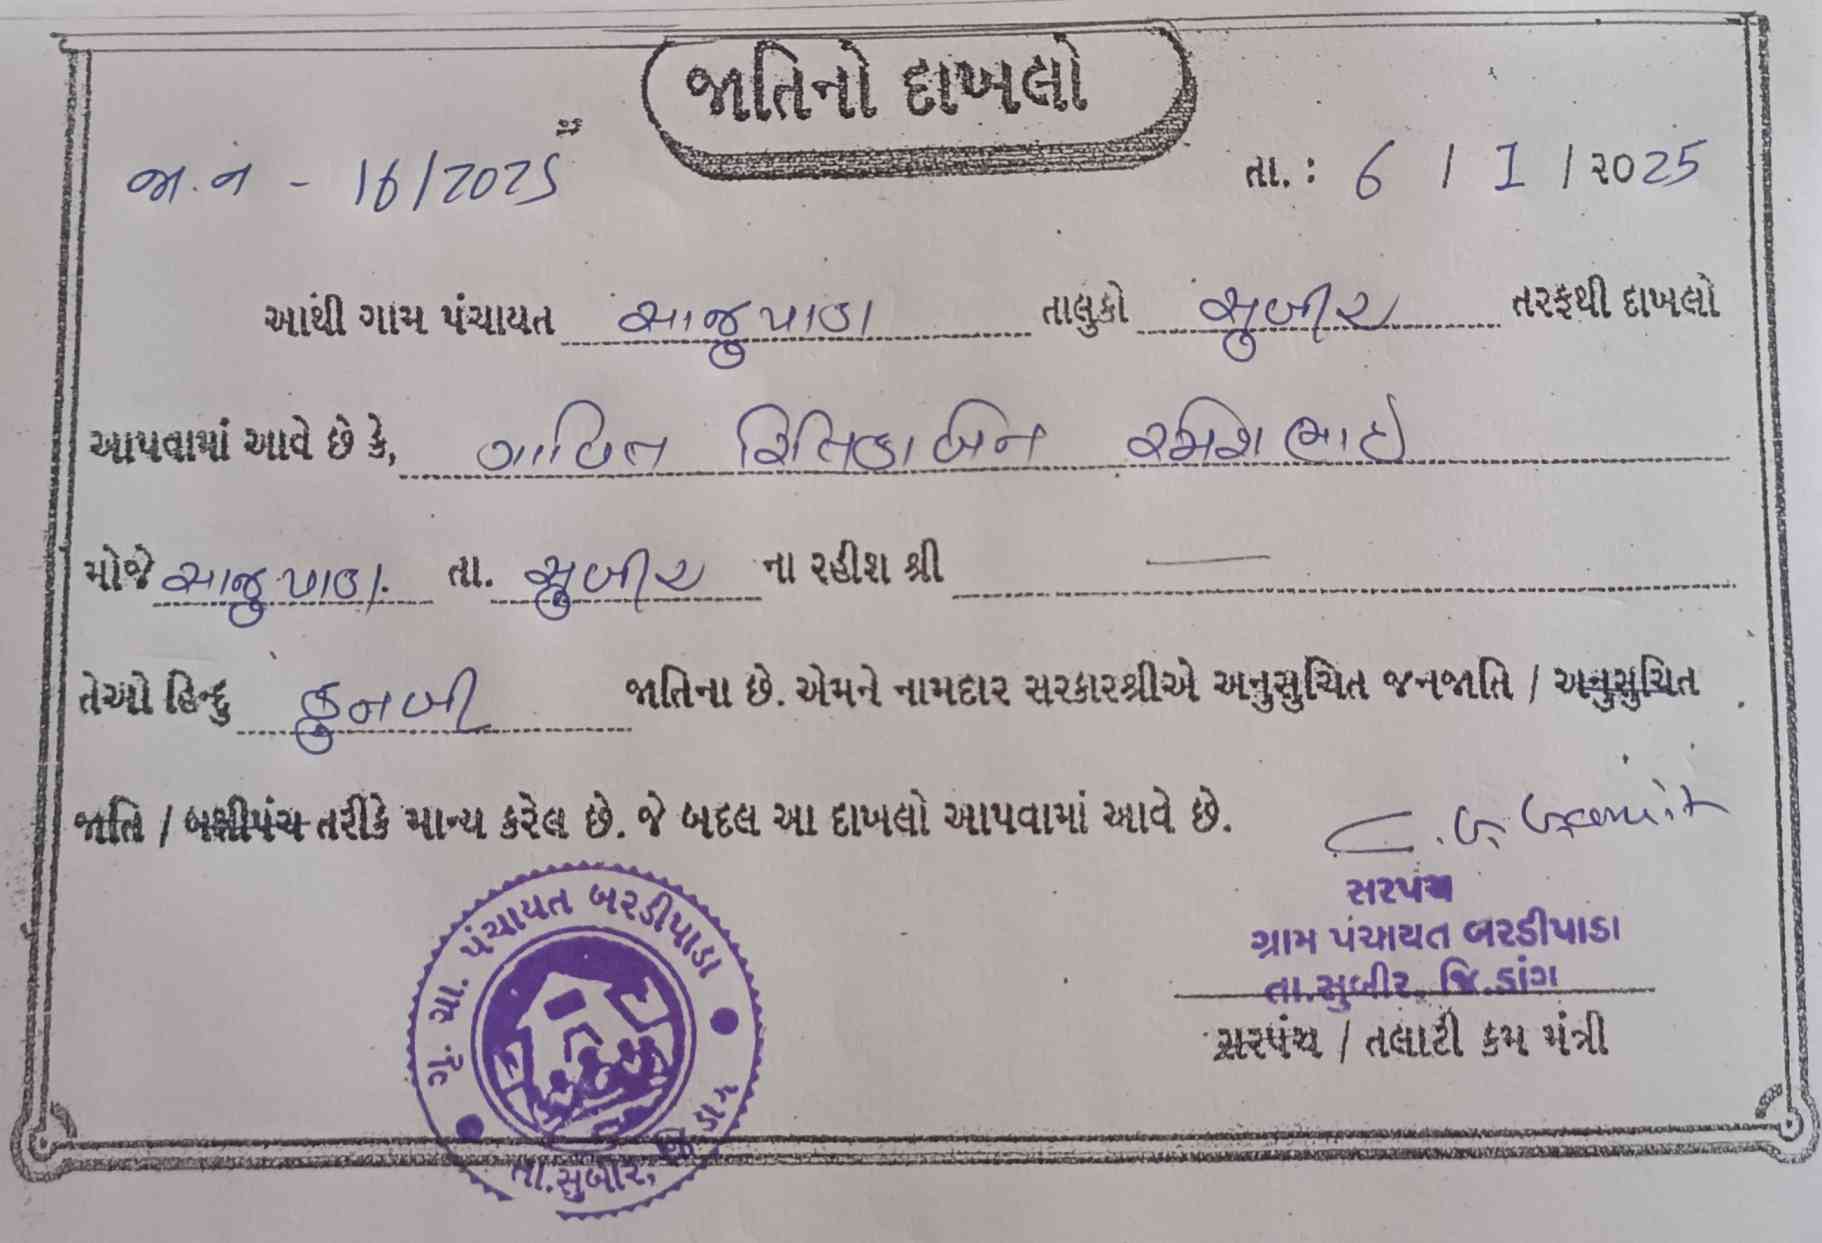 જાતિનો દાખલો
જા.ન - 16/2025
તા. : 6 / 1 / ૨૦25
આથી ગામ પંચાયત સાજુપાડા તાલુકો સુબીર તરફથી દાખલો
આપવામાં આવે છે કે, ગાવિત રિતિકાબેન રમેશભાઇ
મોજે સાજુપાડા. તા. સુબીર ના રહીશ શ્રી —
તેઓ હિન્દુ કુનબી જાતિના છે. એમને નામદાર સરકારશ્રીએ અનુસુચિત જનજાતિ / અનુસુચિત
જાતિ / બક્ષીપંચ તરીકે માન્ય કરેલ છે. જે બદલ આ દાખલો આપવામાં આવે છે.
સરપંચ
ગ્રામ પંચાયત બરડીપાડા
તા.સુબીર, જિ.ડાંગ
સરપંચ / તલાટી કમ મંત્રી
પંચાયત બરડીપાડા
તા.સુબીર,